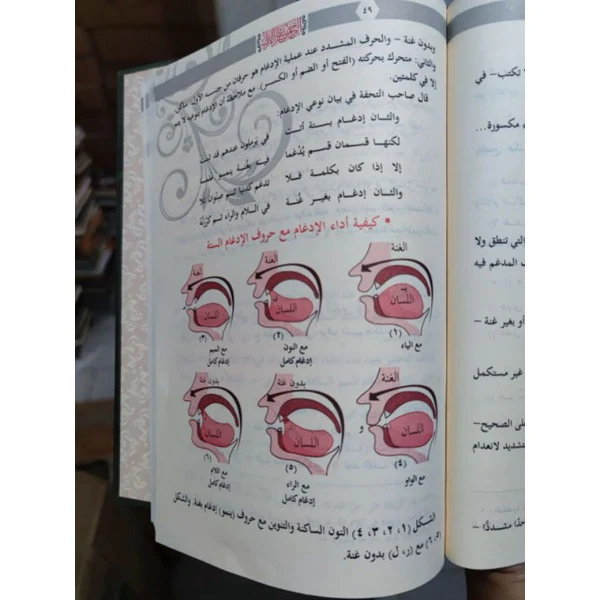 ٤٩
وبدون غنة – والحرف المشدد عند عملية الإدغام هو حرفان من جنسه الأول: ساكن
والثاني: متحرك بحركته (الفتح أو الضم أو الكسر). مع ملاحظة أن الإدغام لا
إلا في كلمتين.
قال صاحب التحفة في بيان نوعي الإدغام:
والثان إدغام بستة أتت
في يرملون عندهم قد ثبتت
لكنها قسمان قسم يُدغما
فيه بغنة بينمو علما
إلا إذا كان بكلمة فلا
تدغم كدنيا ثم صنوان تلا
والثان إدغام بغير غنة
في اللام والراء ثم كررنه
• كيفية أداء الإدغام مع حروف الإدغام الستة
الغنة
اللسان
(١)
مع الياء
الغنة
اللسان
(٢)
مع النون
إدغام كامل
الغنة
اللسان
(٣)
مع الميم
إدغام كامل
الغنة
و
اللسان
(٤)
مع الواو
بدون غنة
اللسان
(٥)
مع الراء
إدغام كامل
بدون غنة
اللسان
(٦)
مع اللام
إدغام كامل
الشكل (١، ٢، ٣، ٤) النون الساكنة والتنوين مع حروف (ينمو) إدغام بغنة. والشكل
(٥، ٦) مع (ر، ل) بدون غنة.
تكتب – في
ء مكسورة...
التي تنطق ولا
المدغم فيه
أو بغير غنة –
غير مستكمل
على الصحيح –
تشديد لانعدام
حدًا مشددًا –